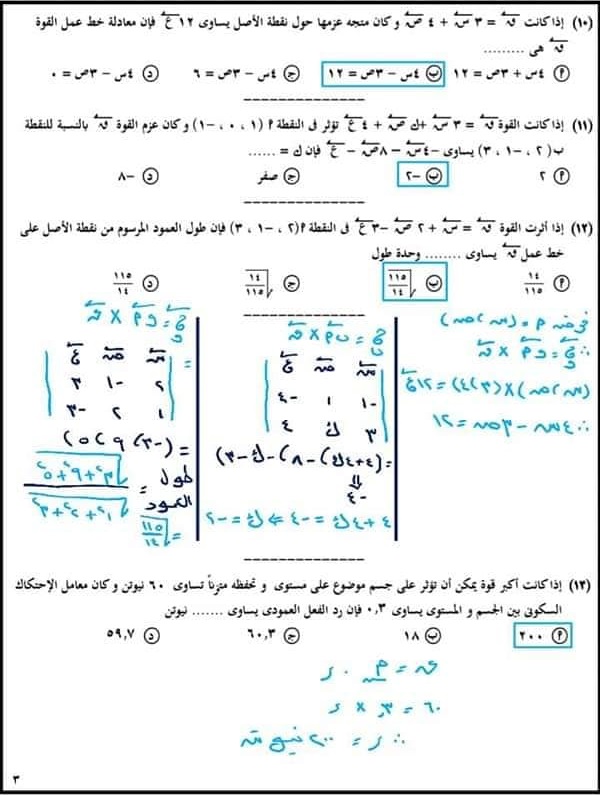 (١٠) إذا كانت ق = ٣ س + ٤ ص و كان متجه عزمها حول نقطة الأصل يساوى ١٢ ع فإن معادلة خط عمل القوة
ق هى .........
أ ٤س + ٣ص = ١٢ ب ٤س − ٣ص = ١٢ ج ٤س − ٣ص = ٦ د ٤س − ٣ص = ٠
(١١) إذا كانت القوة ق = ٣ س + ك ص + ٤ ع تؤثر فى النقطة أ (١ ، ٠ ، −١) و كان عزم القوة ق بالنسبة للنقطة
ب (٢ ، −١ ، ٣) يساوى −٤ س − ٨ ص − ع فإن ك = ......
أ ٢ ب −٢ ج صفر د −٨
(١٢) إذا أثرت القوة ق = س + ٢ ص − ٣ ع فى النقطة أ (٢ ، −١ ، ٣) فإن طول العمود المرسوم من نقطة الأصل على
خط عمل ق يساوى ........ وحدة طول
أ ١٤/١١٥ ب √(١١٥/١٤) ج √(١٤/١١٥) د ١١٥/١٤
فرض أ = (س، ص)
∴ ج و = و أ × ق
(س، ص) × (٣، ٤) = ١٢ ع
∴ ٤س − ٣ص = ١٢
ج ب = ب أ × ق
س ص ع
−١ ١ −٤
٣ ك ٤
= (٤+٤ك، −٨، −ك−٣)
⇓
−٤
٤ + ٤ك = −٤ ⇒ ك = −٢
ج و = و أ × ق
=
س ص ع
٢ −١ ٣
١ ٢ −٣
= (−٣، ٩، ٥)
طول العمود = √(٣²+٩²+٥²) / √(١²+٢²+٣²)
= √(١١٥/١٤)
(١٣) إذا كانت أكبر قوة يمكن أن تؤثر على جسم موضوع على مستوى و تحفظه متزناً تساوى ٦٠ نيوتن و كان معامل الإحتكاك
السكونى بين الجسم و المستوى يساوى ٠,٣ فإن رد الفعل العمودى يساوى ....... نيوتن
أ ٢٠٠ ب ١٨ ج ٦٠,٣ د ٥٩,٧
ق = م س . ر
٦٠ = ٣, × ر
∴ ر = ٢٠٠ نيوتن
٣